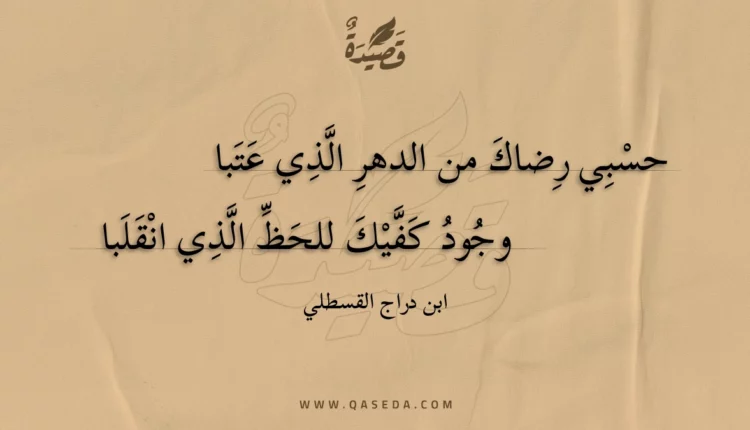 قَصِيدَةٌ
حسْبِي رِضاكَ من الدهرِ الَّذِي عَتَبا
وجُودُ كَفَّيْكَ للحَظِّ الَّذِي انْقَلَبا
ابن دراج القسطلي
WWW.QASEDA.COM